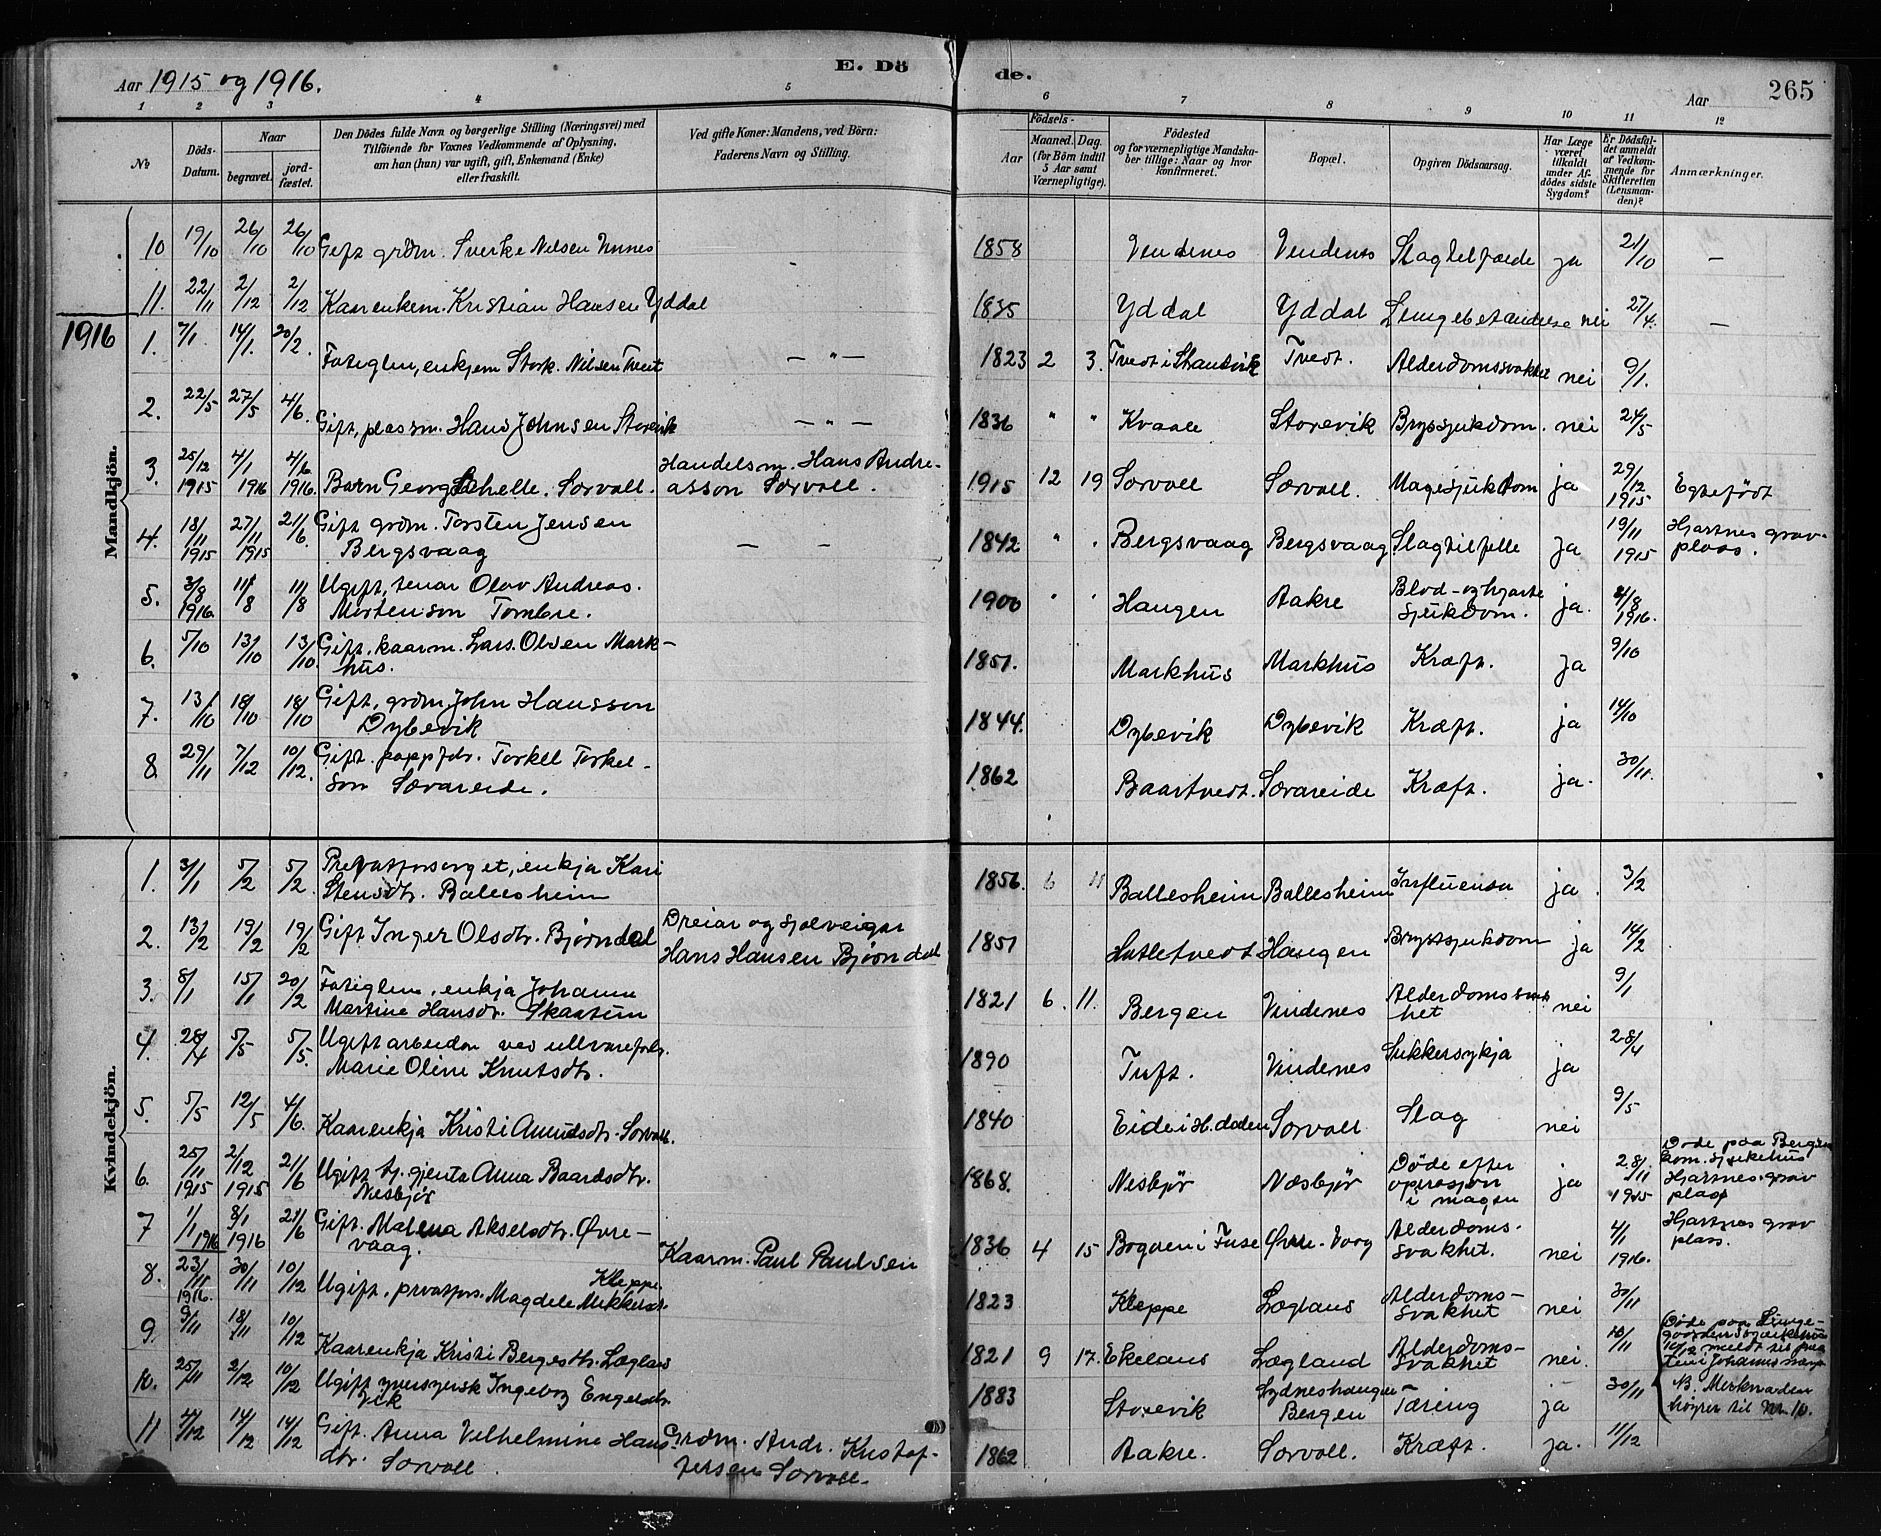 Aar 1915 og 1916.
E. Dö
de.
Aar
265
1 2 3 4 5 6 7 8 9 10 11 12
No
Döds-Datum.
Naar
begravet.
jord-fæstet.
Den Dödes fulde Navn og borgerlige Stilling (Næringsvei) med
Tilföiende for Voxnes Vedkommende af Oplysning,
om han (hun) var ugift, gift, Enkemand (Enke)
eller fraskilt.
Ved gifte Koner: Mandens, ved Börn:
Faderens Navn og Stilling.
Födsels-
Aar
Maaned.
Dag.
(for Börn indtil
5 Aar samt
Værnepligtige).
Födested
og for værnepligtige Mandska-
ber tillige: Naar og hvor
konfirmeret.
Bopæl.
Opgiven Dödsaarsag.
Har Læge
været
tilkaldt
under Af-
dödes sidste
Sygdom?
Er Dödsfal-
det anmeldt
af Vedkom-
mende for
Skifteretten
(Lensman-
den)?
Anmærkninger.
Mandkjön.
10 19/10 26/10 26/10 Gift grdm. Sverke Nilsen Vinnes 1858 Vendenes Vendenes Slagtelfælde ja 21/10 —
11. 22/11 2/12 2/12 Kaarenkem. Kristian Hansen Yddal 1835 Yddal Yddal Lungebetændelse nei 27/4. —
1916
1. 7/1 14/1. 20/2. Fatiglem, enkjem Stork. Nilsen Tveit — " — 1823 2 3. Tvedt i Strandvik Tvedt. Alderdomssvakhet nei 9/1.
2. 22/5 27/5 4/6. Gift, plassm. Hans Johnsen Storevik — " — 1836 " " Kvaale Storevik Brystsjukdom. nei 24/5
3. 25/12 1915 4/1 1916 4/6 1916. Barn Georg Schelle. Sørvoll. Handelsm. Hans Andre-
asson Sørvoll. 1915 12 19 Sørvoll Sørvoll. Magesjukdom ja 29/12 1915 Egtefødt
4. 18/11 1915 27/11 1915 21/6. Gift grdm. Torsten Jensen
Bergsvaag — — 1842 " . Bergsvaag Bergsvaag Slagtilfelle ja 19/11 1915 Hjartnes grav-
plass.
5. 3/8 1916. 11/8 11/8 Ugift, tenar Olav Andreas.
Mortenson Tombre. 1900 " " Haugen Aakre Blod- og hjarte
sjukdom. ja. 4/8 1916.
6. 5/10 13/10 13/10. Gift, kaarm. Lars. Olsen Mark-
hus. 1851. Markhus Markhus Kræft. ja 9/10
7. 13/10 18/10 18/10 Gift, grdm. John Hansson
Dybevik 1844. Dybevik Dybevik Kræft. ja 14/10
8. 29/11 7/12 10/12. Gift. Torkel Torkel-
son Sævareide. 1862 Baartvedt. Sævareide Kræft. ja. 30/11.
Kvindekjön.
1. 3/1 5/2 5/2. Privatforsorget, enkja Kari
Stensdtr. Ballesheim 1856. 6 11 Ballesheim Ballesheim Influensa ja. 3/2
2. 13/2 19/2 19/2 Gift Inger Olsdtr. Bjørndal Dreiar og sjølveigar
Hans Hansen Bjørndal 1851 Hatletvedt Haugen Brystsjukdom ja 14/2
3. 8/1 15/1 20/2 Fatiglem, enkja Johanne
Martine Hansdtr. Skaatun 1821 6. 11. Bergen Vindenes Alderdomssvak
het nei 9/1
4. 28/4 5/5 5/5. Ugift arbeider ved ullvarefabr.
Marie Oline Knutsdtr. 1890 Tuft. Vindenes Sukkersykja ja 28/4
5. 5/5 12/5 4/6. Kaarenkja Kristi Amundsdtr. Sørvoll. 1840 Eide i H.dalen Sørvoll Slag nei 9/5
6. 25/11 1915 2/12 1915 21/6 Ugift tj. gjenta Anna Baardsdtr.
Nesbjør 1868. Nesbjør Næsbjør Døde efter
operasjon
i magen ja 28/11 1915 Døde paa Bergens
kom. sjukehus
Hjartnes grav
plass
7 1/1 1916 8/1 1916 21/6 Gift. Malena Akselsdtr. Øvre-
vaag. Kaarm. Paul Paulsen 1836 4 15 Bogøen i Fuse Øvre-Vaag Alderdoms-
svakhet. nei 4/1 1916. Hjartnes grav
plass.
8. 23/11 1916. 30/11 10/12 Ugift. privatfors. Magdele Mikkelsdtr. Kleppe 1823 Kleppe Lægland Alderdoms-
svakhet nei 30/11
9. 9/11 18/11 10/12 Kaarenkja Kristi Bergesdtr. Lægland 1821 9 17. Ekeland Lægland Alderdoms-
svakhet nei. 10/11 Døde paa Lunge-
gaardens sjukehus
10/12 meldt til pres
ten i Johannes
10. 25/11 2/12 10/12 Ugift Ingeborg Engelsdtr.
Vik 1883 Storevik Sydneshaugen
Bergen Tæring ja 30/11 N. Merknaden
høyrer til Nr. 10.
11 4/12 14/12 14/12 Gift. Anna Vilhelmine Hans
dtr. Sørvoll Grdm. Andr. Kristof-
fersen Sørvoll. 1862 Aakre. Sørvoll. Kræft. ja. 11/12